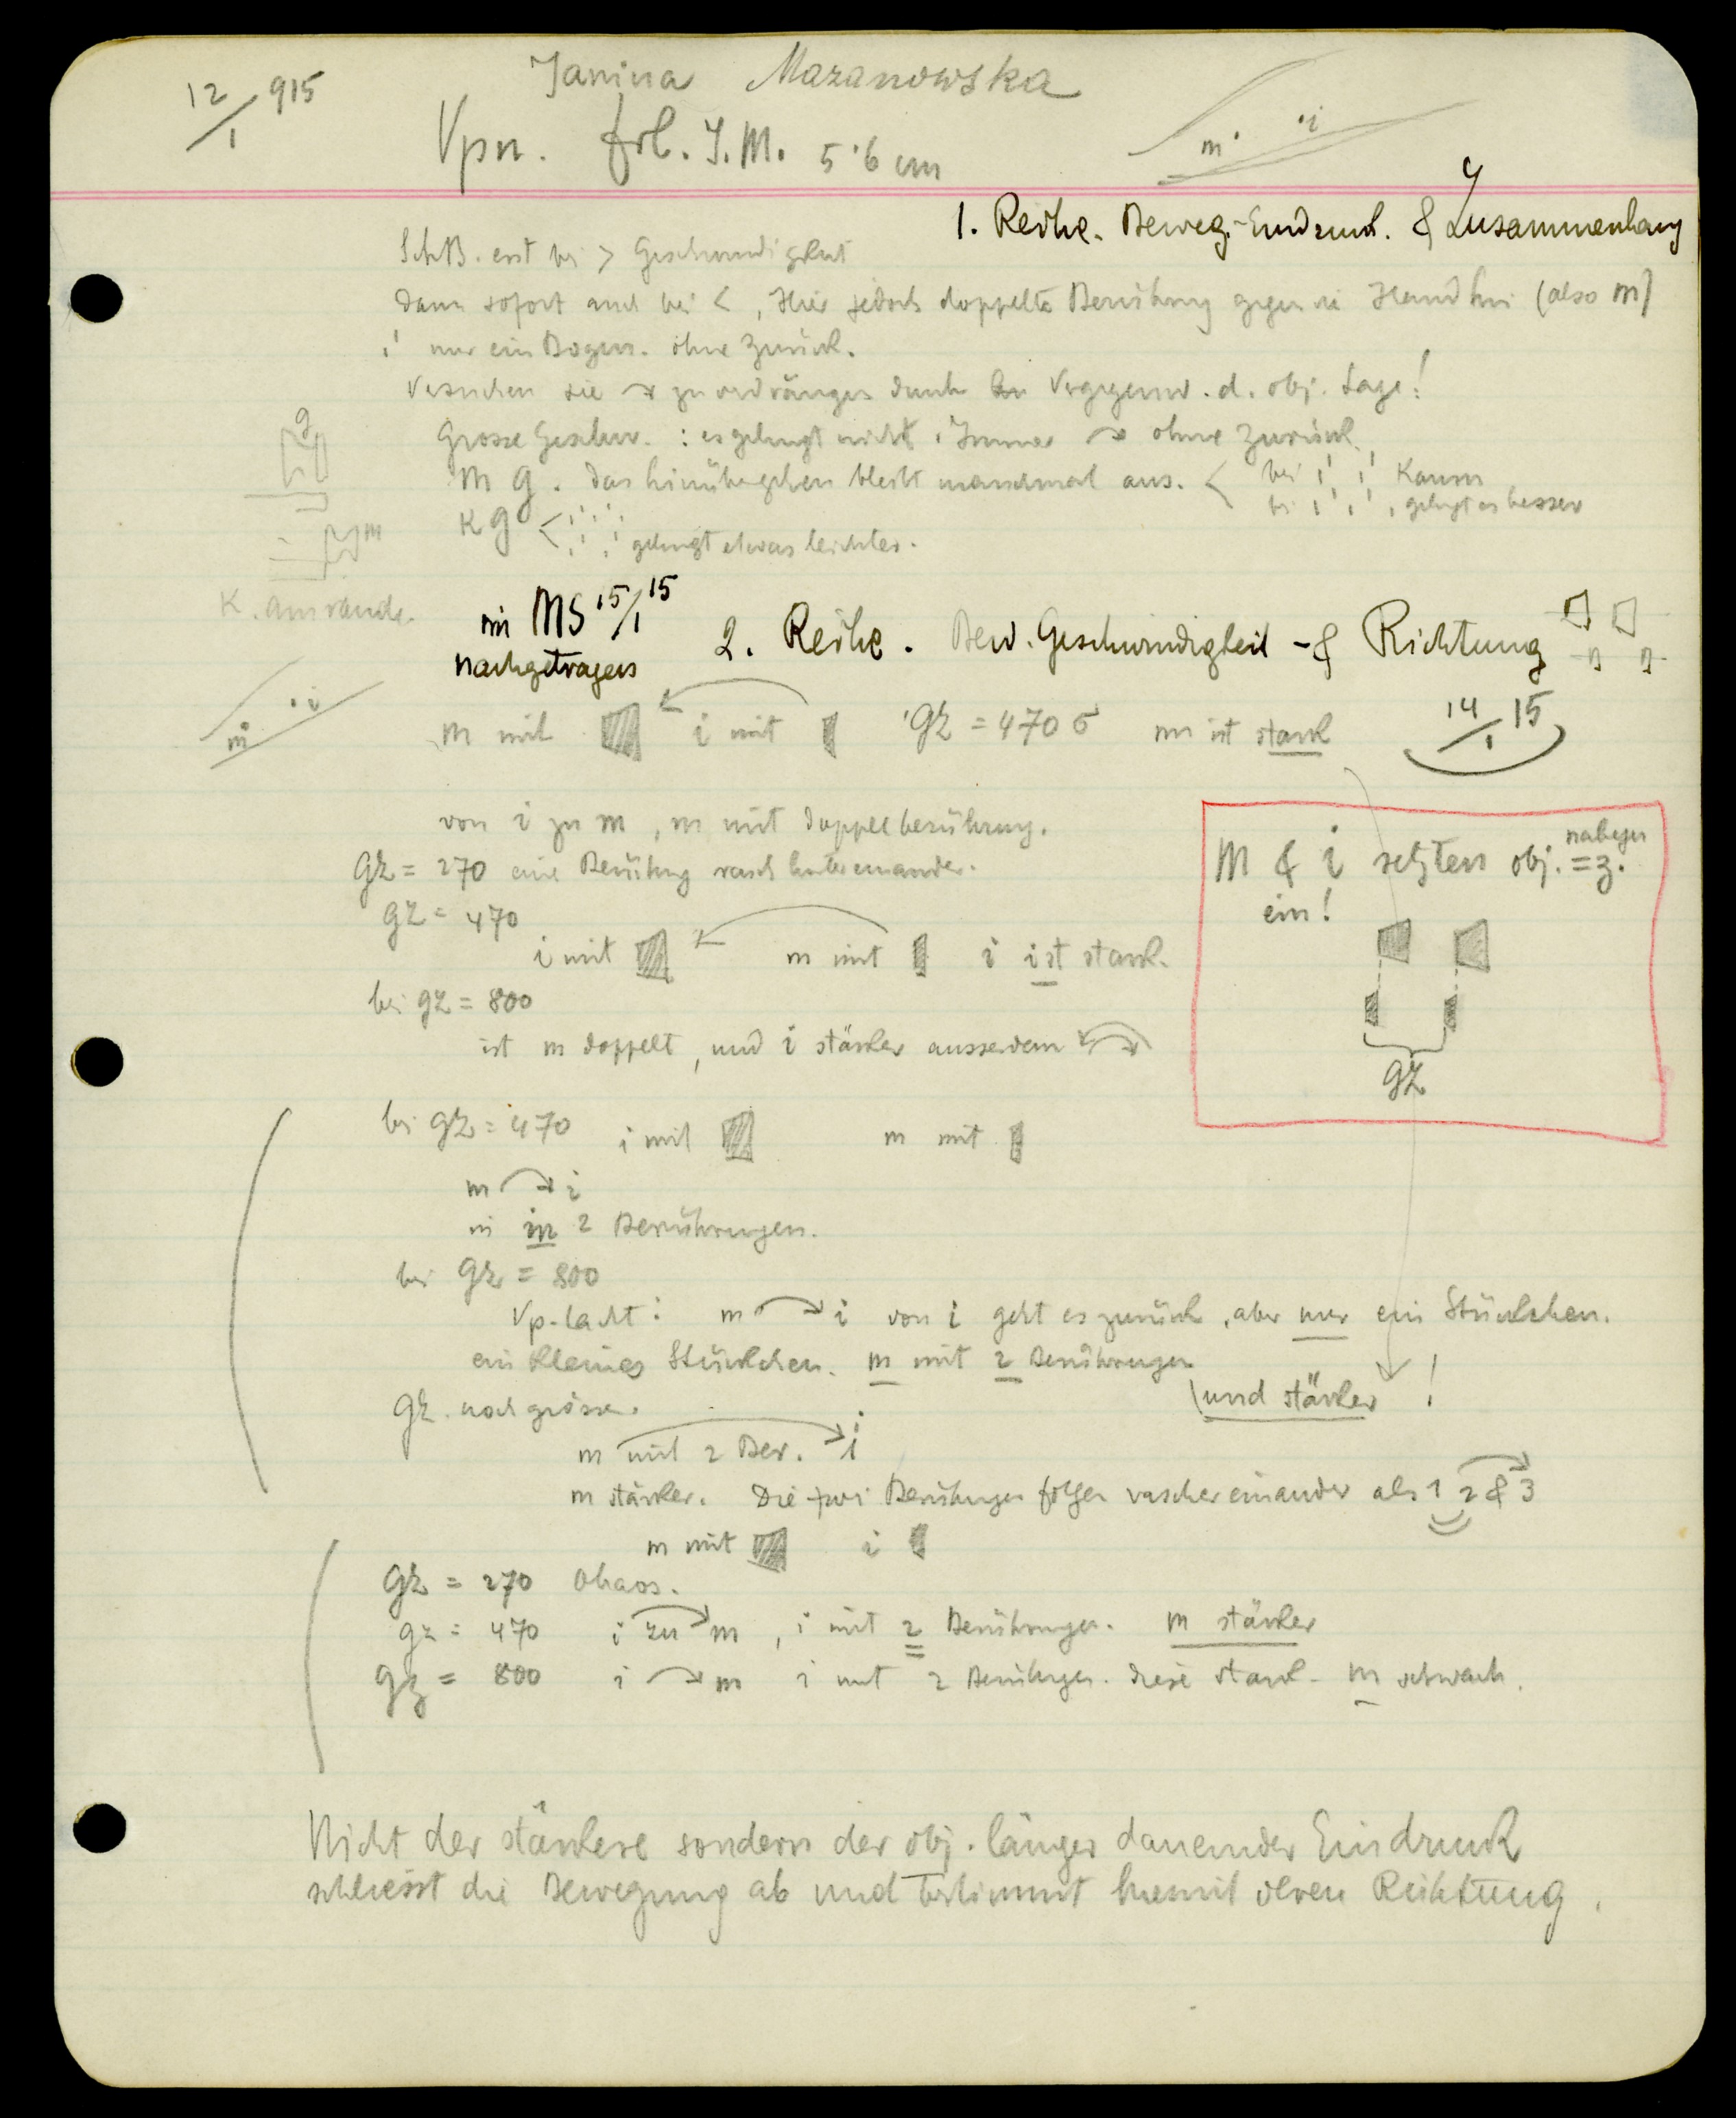 12/1 915
Janina Mazanowska
Vpn. Frl. J. M. 5·6 cm
m i
1. Reihe. Beweg.-Eindruck. & Zusammenhang
SchB. erst bei > Geschwindigkeit
Dann sofort auch bei <, Hier jedoch doppelte Berührung gegen die Hand hin (also m)
i nur ein Bogen. ohne Zurück.
Versuchen sie zu verdrängen durch Vergegenw. d. obj. Lage!
Grosse Geschw.: es gelingt nicht. Immer ohne zurück.
m g. das hinübergehen bleibt manchmal aus. < bei Kaum
bei gelingt es besser
K g < gelingt etwas leichter.
g
m
K. am rande.
in MS 15/1 15
nachgetragen
2. Reihe. Bew. Geschwindigkeit - & Richtung
m i
m mit i mit GZ = 470 σ m ist stark
14/1 15
von i zu m, m mit Doppelberührung.
GZ = 270 eine Berührung rasch hintereinander.
GZ = 470
i mit m mit i ist stark.
bei GZ = 800
ist m doppelt, und i stärker ausserdem
M & i setzten obj. nahezu = z.
ein!
GZ
bei GZ = 470 i mit m mit
m i
in m 2 Berührungen.
bei GZ = 800
Vp. lacht: m i von i geht es zurück, aber nur ein Stückchen.
ein kleines Stückchen. m mit 2 Berührungen
und stärker !
GZ noch grösser.
m mit 2 Ber. i
m stärker. Die zwei Berührungen folgen rascher einander als 1 2 & 3
m mit i
GZ = 270 Chaos.
GZ = 470 i zu m, i mit 2 Berührungen. m stärker
GZ = 800 i m i mit 2 Berührungen. diese stark - m schwach.
Nicht der stärkere sondern der obj. länger dauernder Eindruck
schliesst die Bewegung ab und bestimmt hiemit deren Richtung.